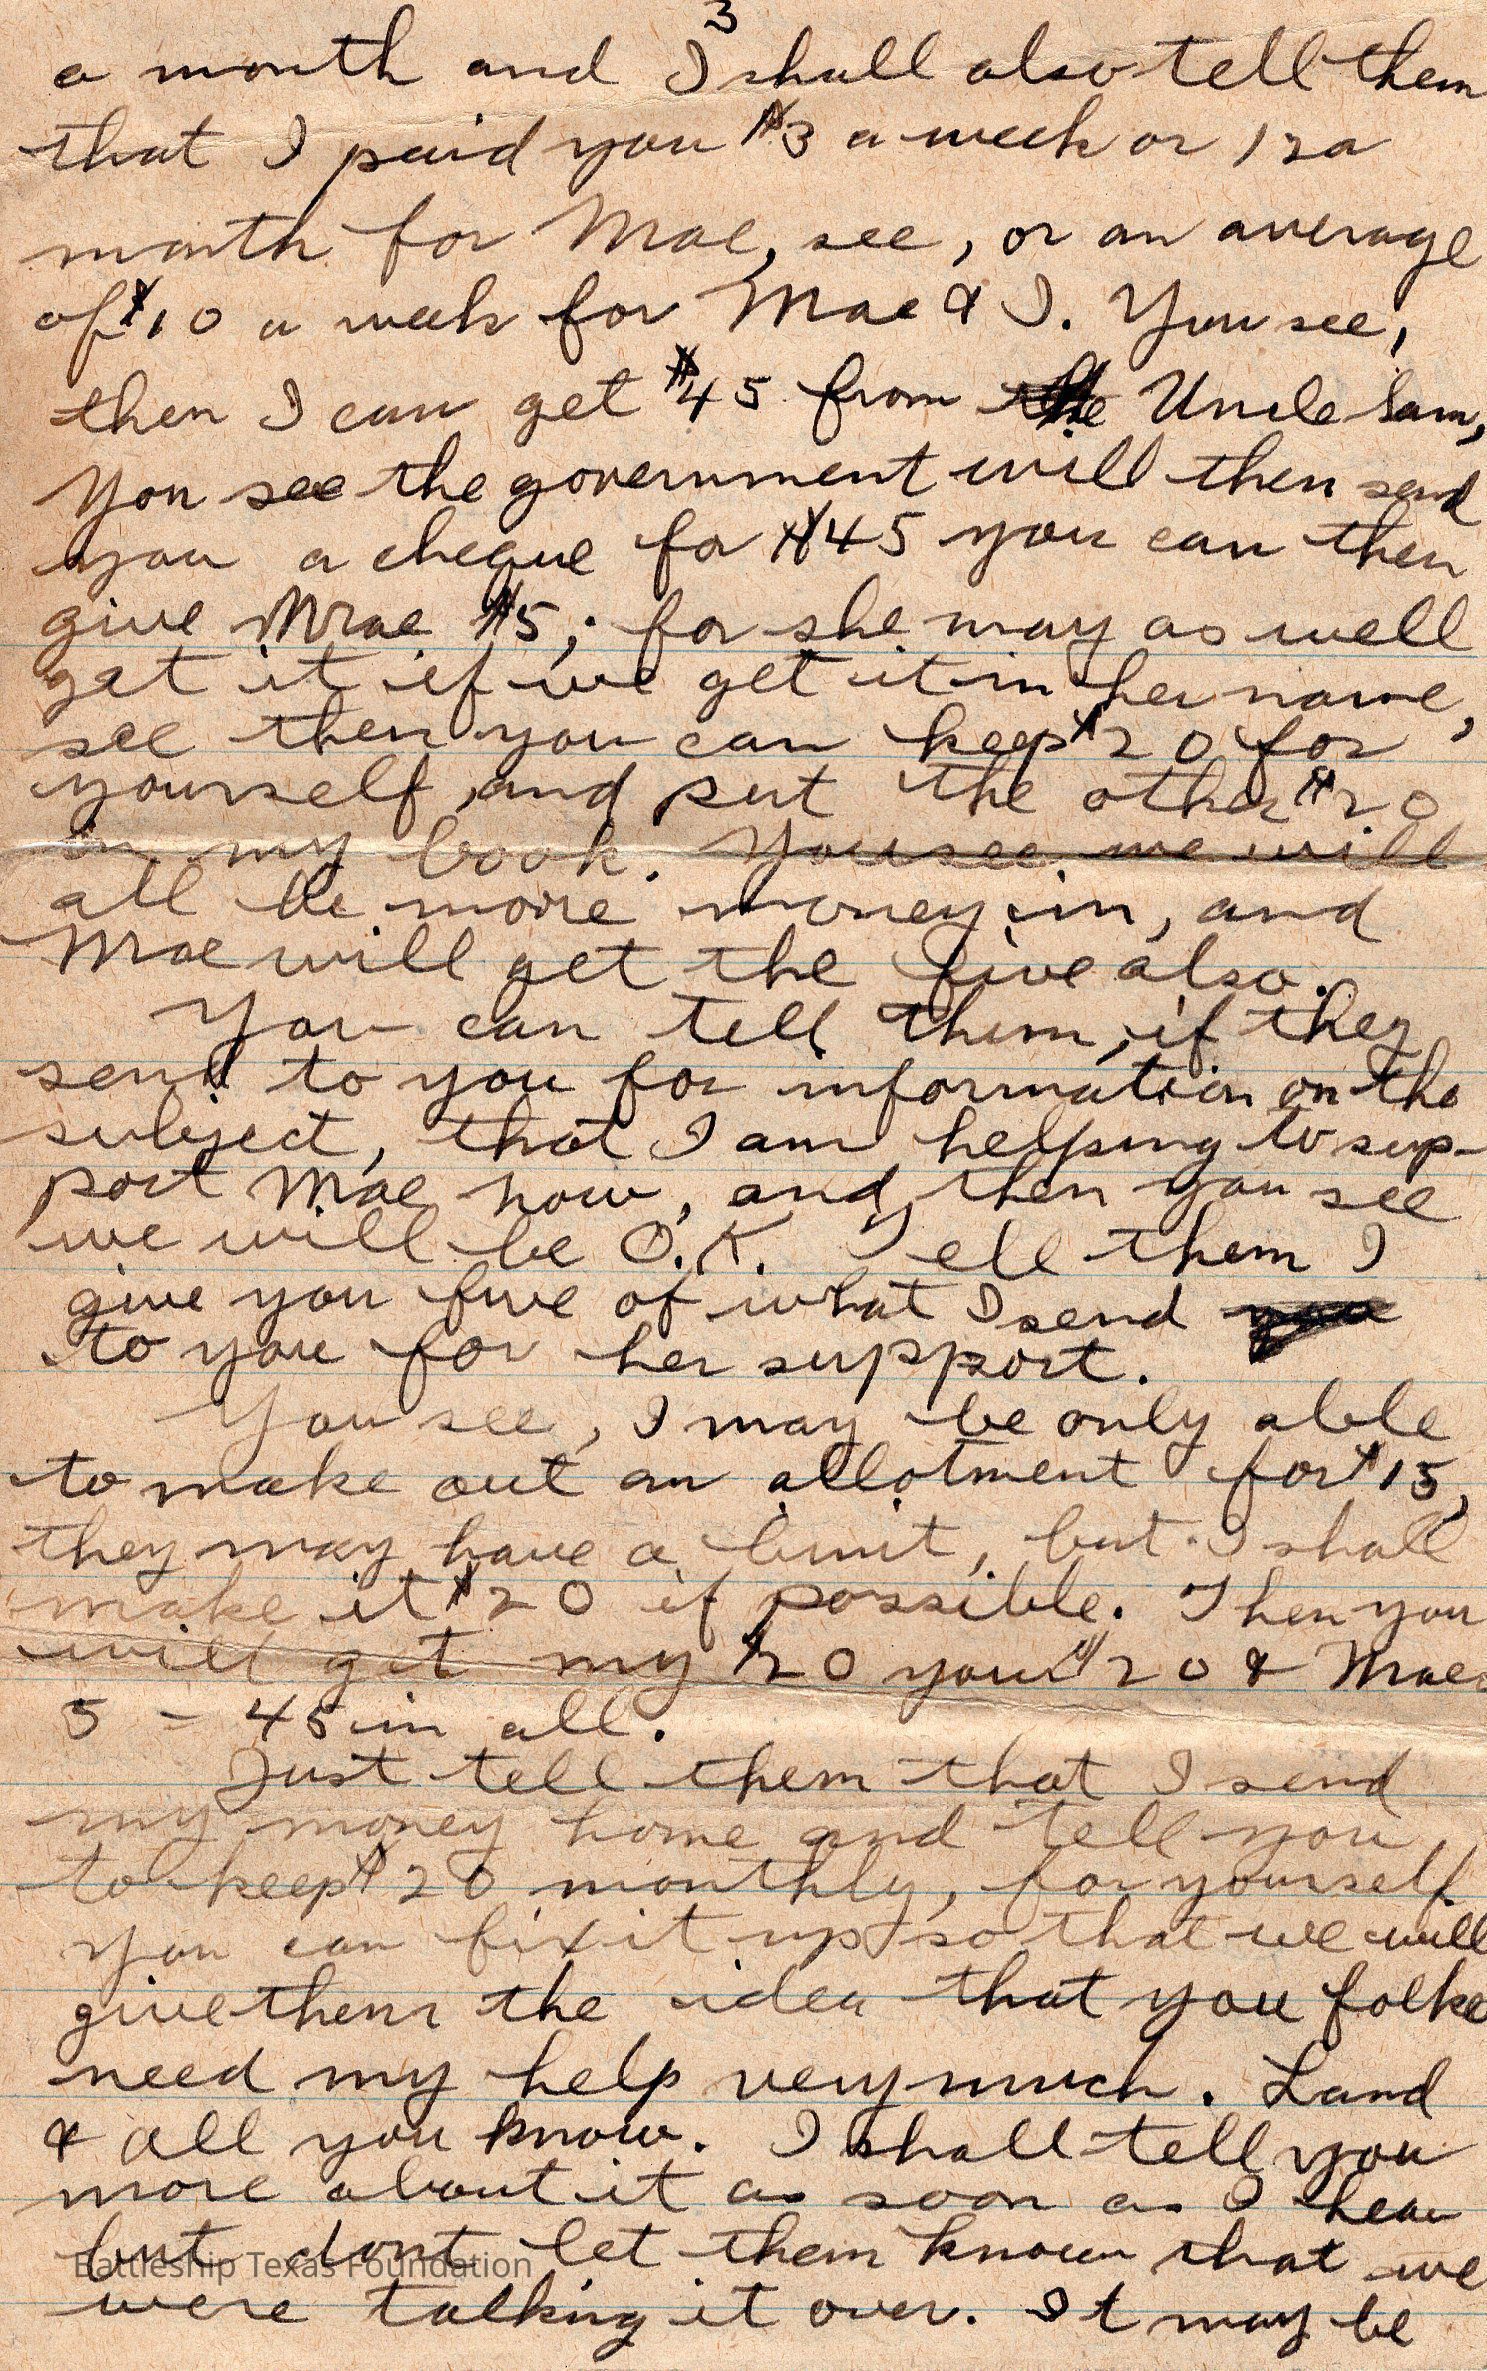 3
a month and I shall also tell them
that I paid you $3 a week or 12 a
month for Mae, see, or an average
of $10 a week for Mae & I. You see,
then I can get $45 from the Uncle Sam,
You see the government will then send
you a cheque for $45 you can then
give Mae $5; for she may as well
get it if we get it in her name,
see then you can keep $20 for
yourself, and put the other $20
in my book. You see we will
all be more money in, and
Mae will get the five also.
You can tell them, if they
send to you for information on the
subject, that I am helping to sup-
port Mae now, and then you see
we will be O.K. Tell them I
give you five of what I send you
to you for her support.
You see, I may be only able
to make out an allotment for $15,
they may have a limit, but I shall
make it $20 if possible. Then you
will get my $20 your $20 & Maes
5 - 45 in all.
Just tell them that I send
my money home and tell you,
to keep $20 monthly, for yourself.
You can fix it up so that we will
give them the idea that you folks
need my help very much. Land
& all you know. I shall tell you
more about it as soon as I hear
but dont let them know that we
Battleship Texas Foundation
were talking it over. It may be